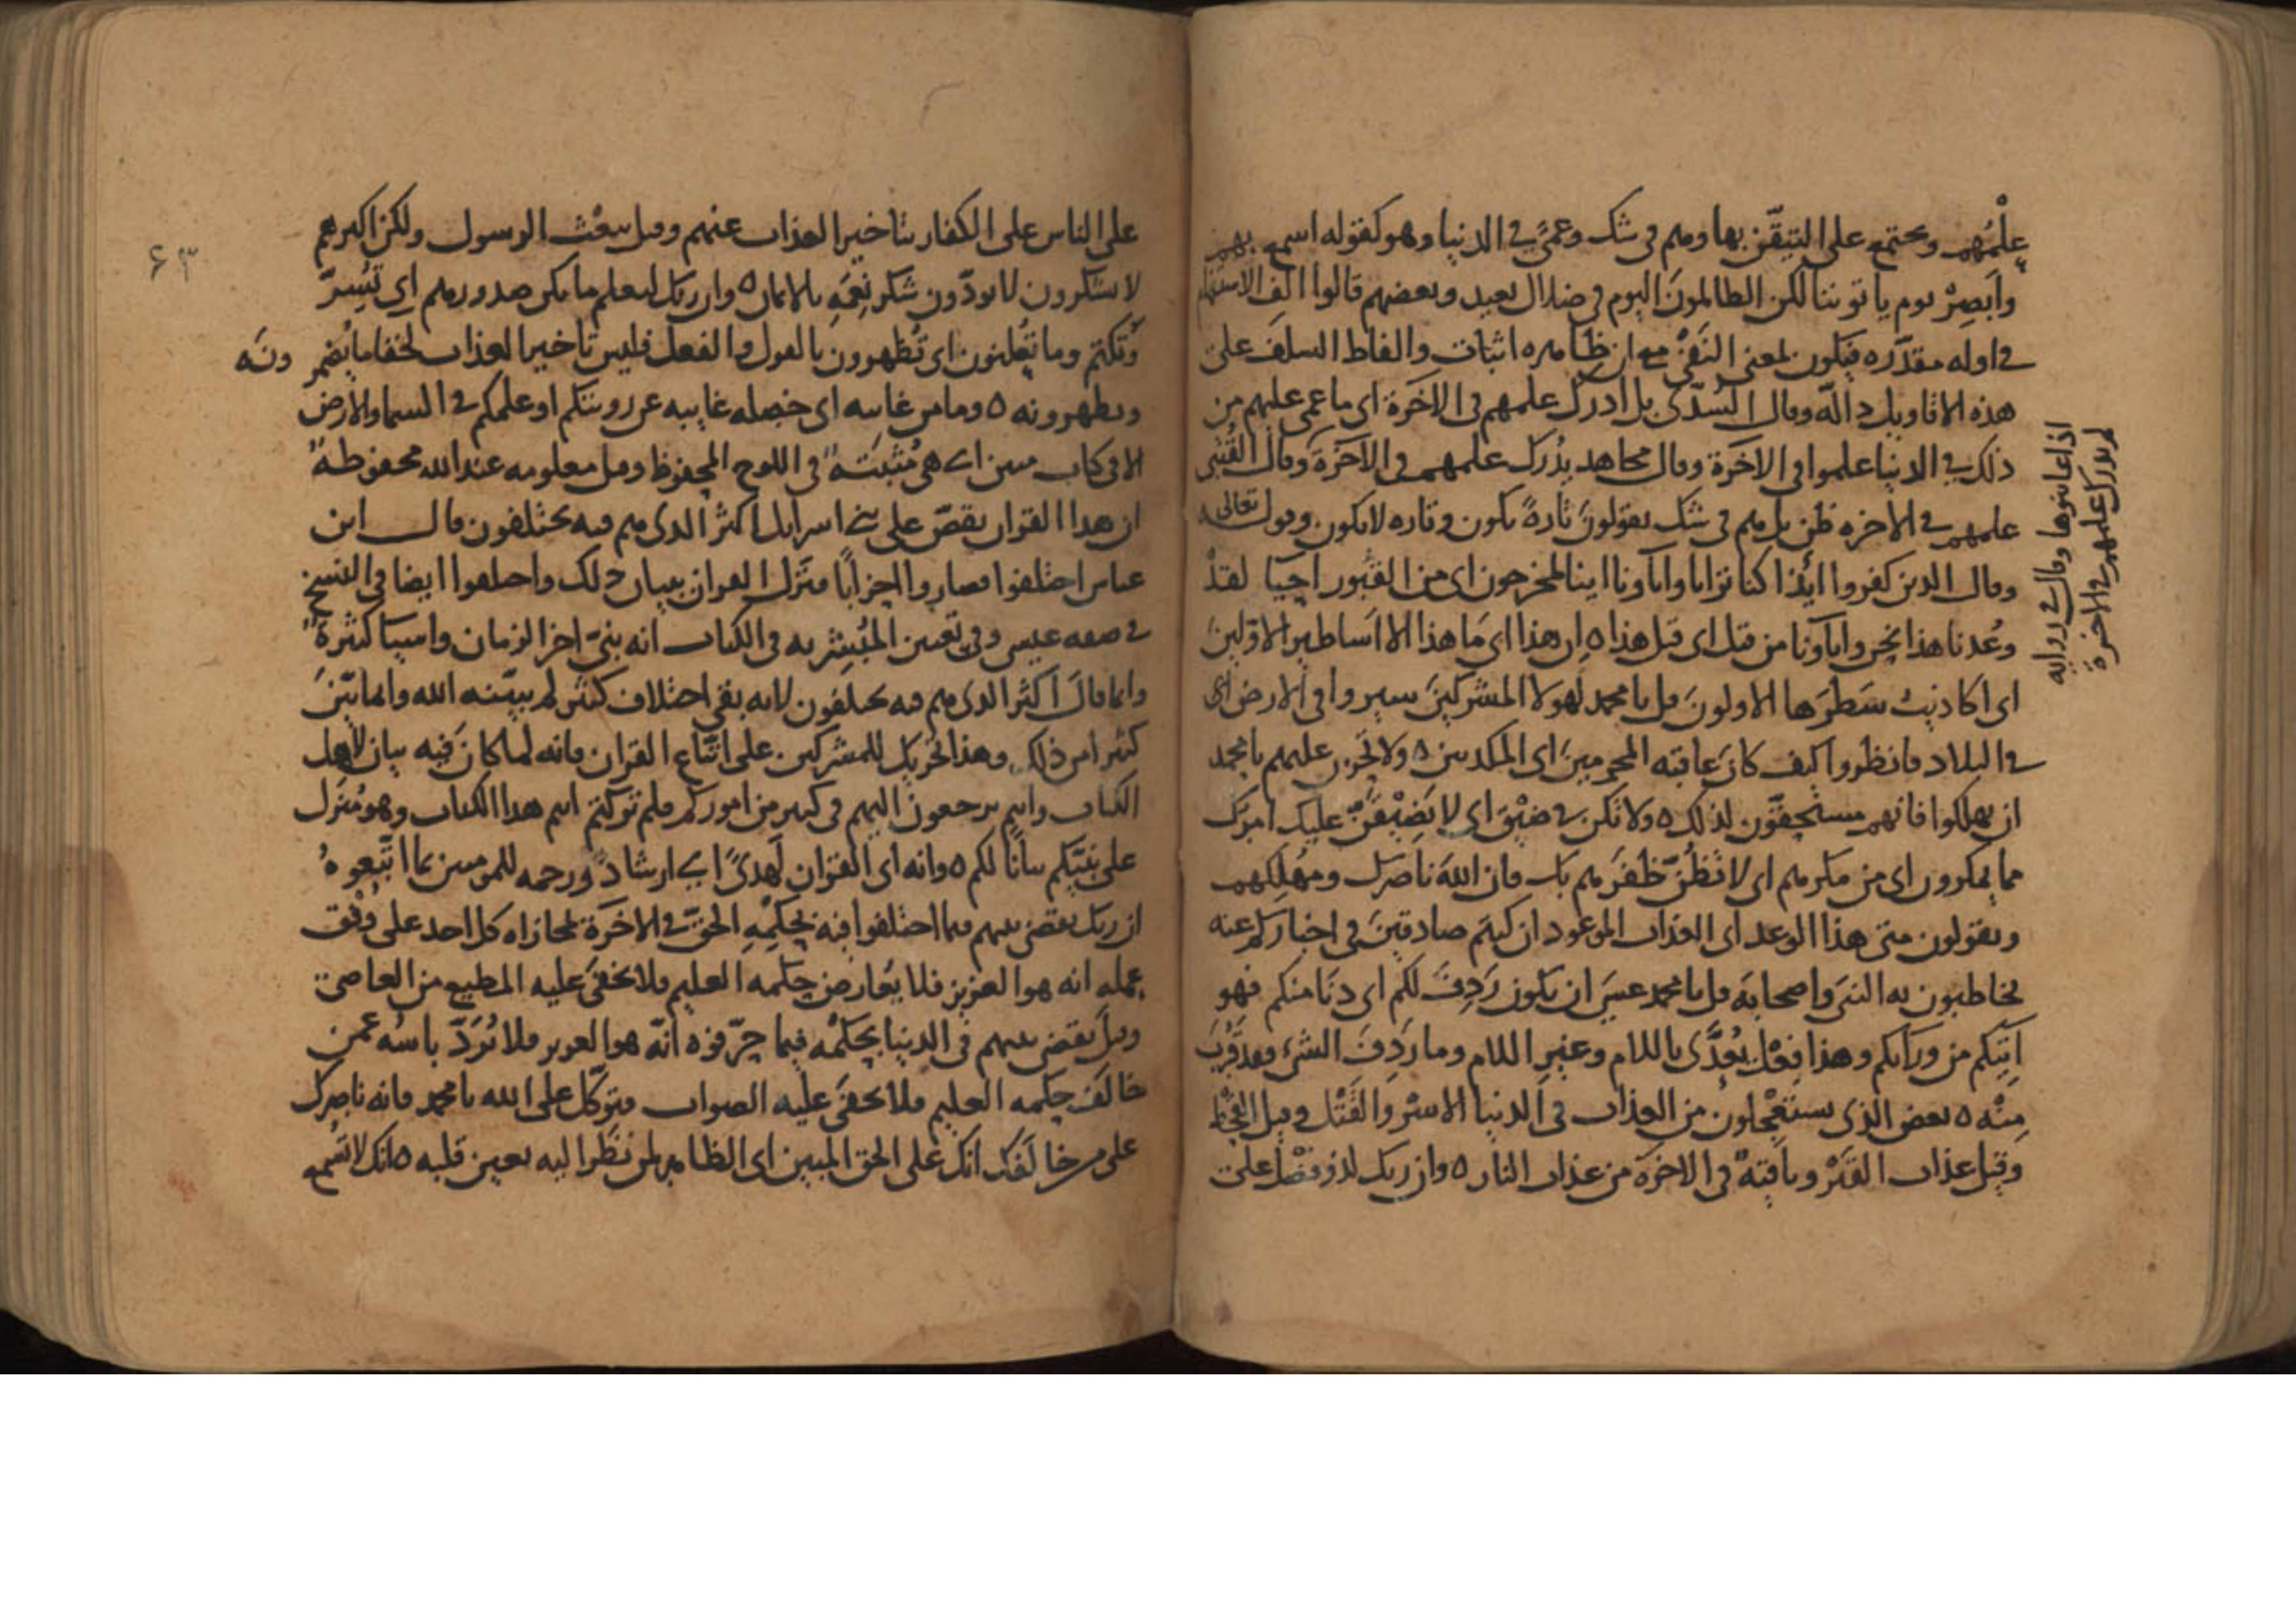 علمُهم ويجتمع على التيقّن بها وهم في شك وعمًى في الدنيا وهو كقوله اسمع بهم
وأبصِرْ يوم يأتوننا لكن الظالمونَ اليوم في ضلال بعيد وبعضهم قالوا الف الاستفهام
في اوله مقدّره فيكون لمعنى النَفْي مع ان ظاهره اثبات والفاظ السلف على
هذه الاقاويل دالّه وقال السُدّي بل ادرك علمهم في الاخرة اي ما عمي عليهم من
ذلك في الدنيا علموا في الاخرة وقال مجاهد يُدْرَك علمهم في الاخرة وقال القُتَبي
علمهم في الاخره ظن بل هم في شك يقولونَ تارةً يكون وتاره لا يكون وقوله تعالى
وقال الذين كفروا ائذا كنا ترابا وآباؤنا اينا لمخرجون اي من القبور احيا لقد
وُعدنا هذا نحن واباونا من قبل اي قبل هذا ان هذا اي ما هذا الا اساطير الاوّلين
اي اكاذيب سَطَرَها الاولونَ قل يا محمد لهولا المشركينَ سيروا في الارض اي
في البلاد فانظروا كيف كان عاقبه المجرمينَ اي المكذبين ولا تحزن عليهم يا محمد
ان يهلكوا فانهم مستحقّون لذلك ولا تكن في ضيْق اي لا يَضِيْقَنّ عليك امرك
مما يمكرون اي من مكرهم اي لا تظُنّ ظفَرهم بك فان الله ناصرك ومهلكهم
ويقولون متى هذا الوعد اي العذاب الموعود ان كنتم صادقينَ في اخباركم عنه
يخاطبون به النبيَ واصحابَه قل يا محمد عسى ان يكون رَدِفَ لكم اي دنا منكم فهو
اتيكم من ورآيكم وهذا فِعْل يُعدَّى باللام وغير اللام وما رَدِفَ الشئ فقد قَرُبَ
مِنْه بعض الذي تستعجلون من العذاب في الدنيا الاسْر والقَتْل وقيل القحط
وقيل عذاب القَبْر وباقيهْ في الاخرة من عذاب النار وان ربك لذو فضْل على
اذا عاينوها وقال في روايه
لم يدرك علمهم في الاخرة
٦٣
على الناس على الكفار بتاخير العذاب عنهم وقيل ببعث الرسول ولكن اكثرهم
لا يشكرون لا يودّون شكر نِعَمِه بالايمان وان ربك ليعلم ما تكن صدورهم اي تُسِرّ
وتكتم وما يُعلنون اي تُظهرون بالقول والفعل فليس تاخير العذاب لخفا ما يُضمر ونَه
ويظهرونه وما من غايبه اي خصله غايبه عن رويتكم او علمكم في السما والارض
الا في كتاب مبين اي هي مُثبَتَةٌ في اللوح المحفوظ وقيل معلومه عند الله محفوظةٌ
ان هذا القران يقصّ على بني اسرايل اكثر الذي هم فيه يختلفون قال ابن
عباس اختلفوا فصاروا احزاباً فنزل القران ببيان ذلك واختلفوا ايضا في النسخ
في صفه عيسى وفي تعيين المُبشر به في الكتاب انه نبيّ اخر الزمان واشيآ كثيرةٌ
وانما قال اكثر الذي هم فيه يختلفون لانه بقي اختلاف كثير لم يبيّنه الله وانما بيّن
كثيرا من ذلك وهذا تحريك للمشركين على اتّباع القران فانه لما كان فيه بيان لاهل
الكتاب وانتم ترجعون اليهم في كثير من اموركم فلم تركتم انتم هذا الكتاب وهو مُنَزل
على نبيّكم بيانا لكم وانه اي القران لهدىً اي ارشاد ورحمه للمومنين بما اتّبعوهُ
ان ربك يقضي بينهم فيما اختلفوا فيه بحكمِه الحقّ في الاخرة لمجازاه كل احد على وَفْق
عمله انه هو العزيز فلا يُعارض حكمه العليم فلا يخفى عليه المطيع من العاصي
وقيل يقضي بينهم في الدنيا بحكمه فيما حرّفوه انّه هو العزيز فلا يُرَدّ باسُه عمن
خالفَ حكمه العليم فلا يخفى عليه الصواب فتوكّل على الله يا محمد فانه ناصرك
على من خالفك انك على الحق المبين اي الظاهر لمن نَظَر اليه بعين قلبه انك لا تسمع